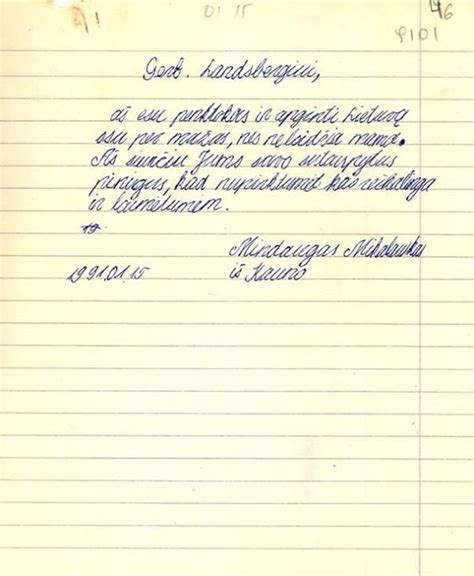 01 15
46
9101
Gerb. Landsbergiui,
aš esu penktokas ir apginti Lietuvą
esu per mažas, nes neleidžia mama.
Aš siunčiu Jums savo sutaupytus
pinigus, kad nupirktumėt kas reikalinga
ir laimėtumėm.
19
Mindaugas
1991.01.15 iš Kauno